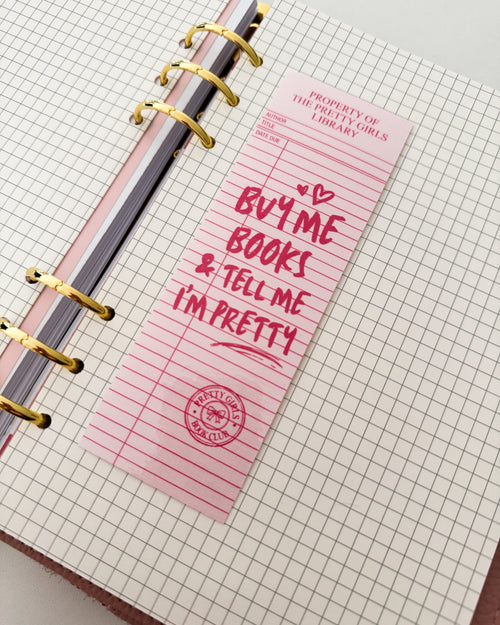 PROPERTY OF
THE PRETTY GIRLS
LIBRARY
AUTHOR
TITLE
DATE DUE
BUY ME
BOOKS
& TELL ME
I'M PRETTY
PRETTY GIRLS
BOOK CLUB